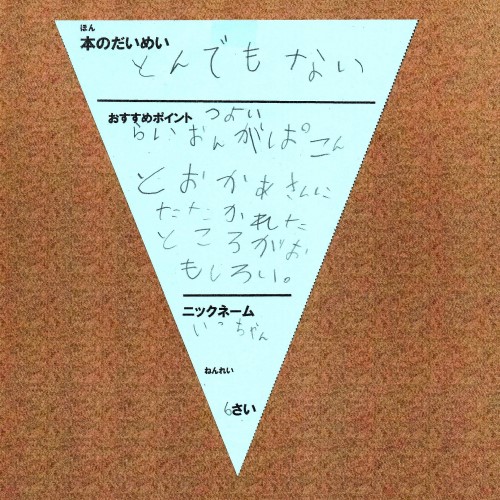 ほん
本のだいめい
とんでもない
おすすめポイント
つよい
らいおんがぱこん
とおかあさんに
たたかれた
ところがお
もしろい。
ニックネーム
いこちゃん
ねんれい
6さい